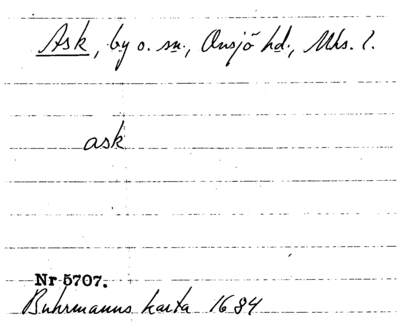 Ask, by o. sn., Onsjö hd., Mhs. l.
ask
Nr 5707.
Buhrmanns karta 1684